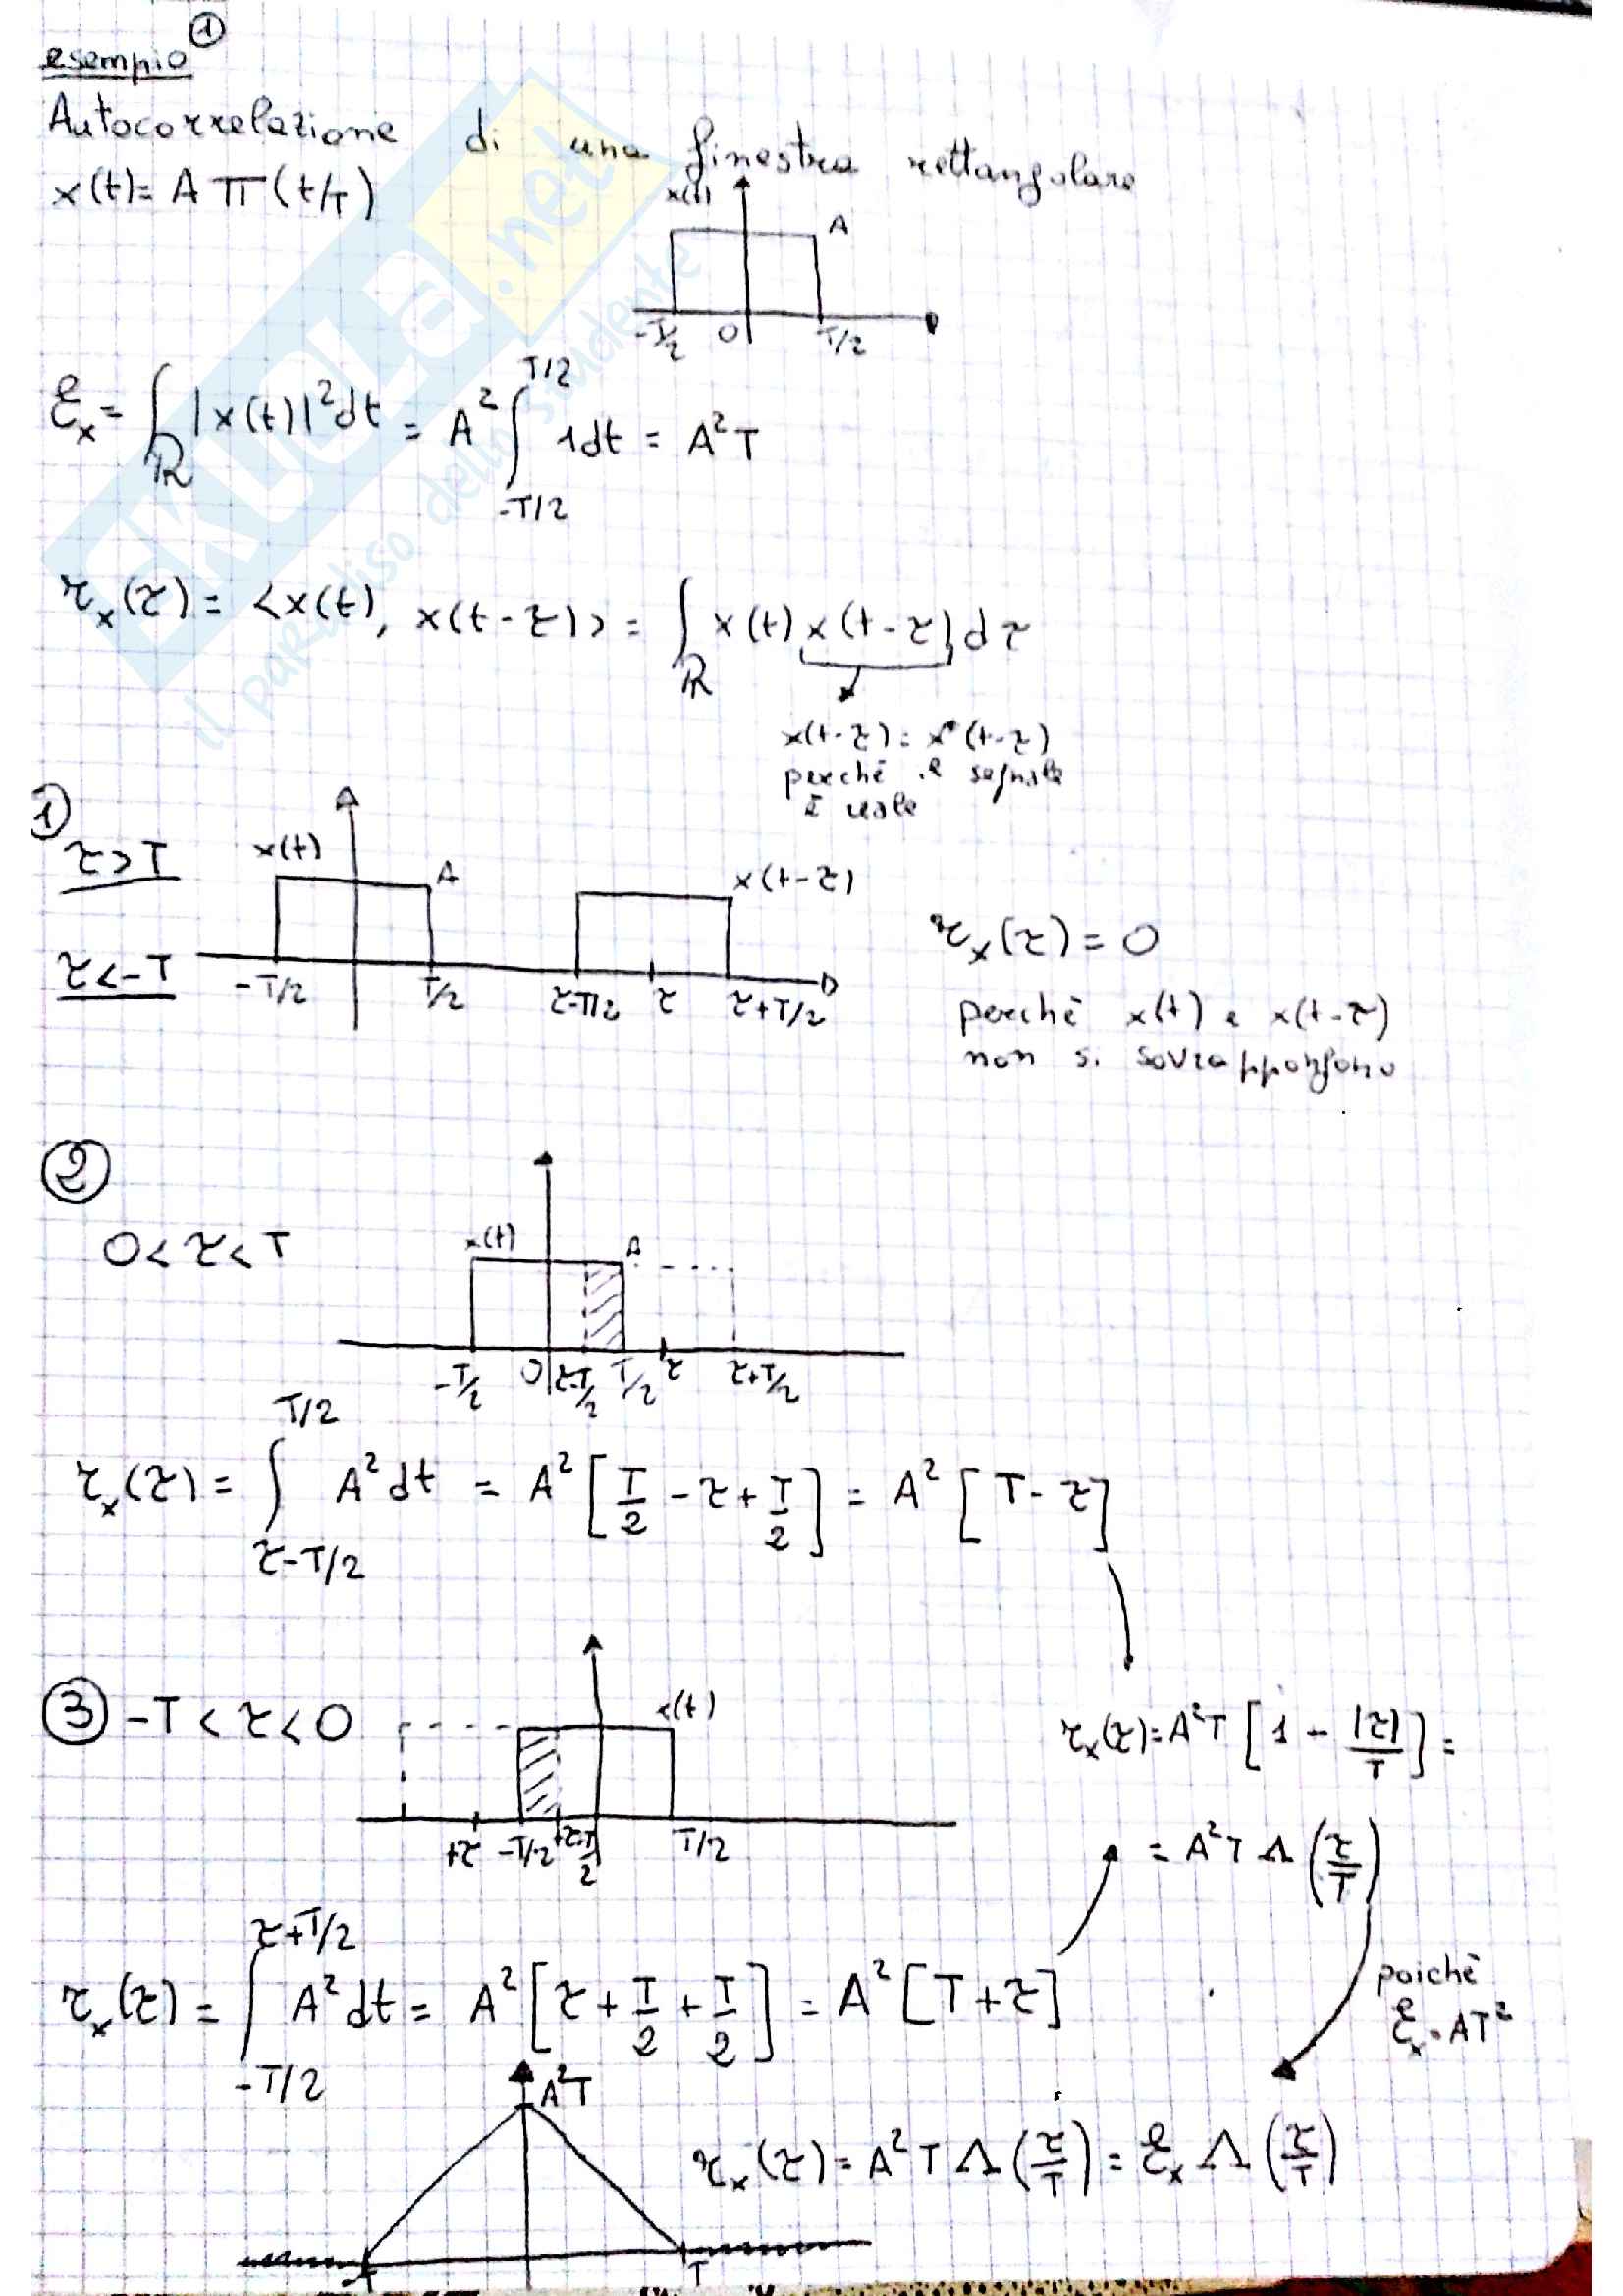 esempio ①
Autocorrelazione di una finestra rettangolare
x(t) = A Π (t/T)
x(t)
A
-T/2 0 T/2
SKUOLA.net
il paradiso dello studente
ℰx = ∫R |x(t)|² dt = A² ∫-T/2^T/2 1dt = A²T
rx(τ) = <x(t), x(t-τ)> = ∫R x(t) x(t-τ) dτ
x(t-τ) = x*(t-τ)
perchè il segnale
è reale
①
τ>T
x(t) A x(t-τ)
rx(τ) = 0
τ<-T
-T/2 T/2 τ-T/2 τ τ+T/2
perchè x(t) e x(t-τ)
non si sovrappongono
②
0<τ<T
x(t) A
-T/2 0 τ-T/2 T/2 τ τ+T/2
rx(τ) = ∫τ-T/2^T/2 A²dt = A² [T/2 - τ + T/2] = A² [T-τ]
③ -T<τ<0
x(t)
rx(τ) = A²T [1 - |τ|/T] =
+τ -T/2 T/2
= A²T Λ (τ/T)
rx(τ) = ∫-T/2^τ+T/2 A²dt = A² [τ + T/2 + T/2] = A² [T+τ]
poichè
ℰx = AT²
A²T
rx(τ) = A²T Λ (τ/T) = ℰx Λ (τ/T)
-T T